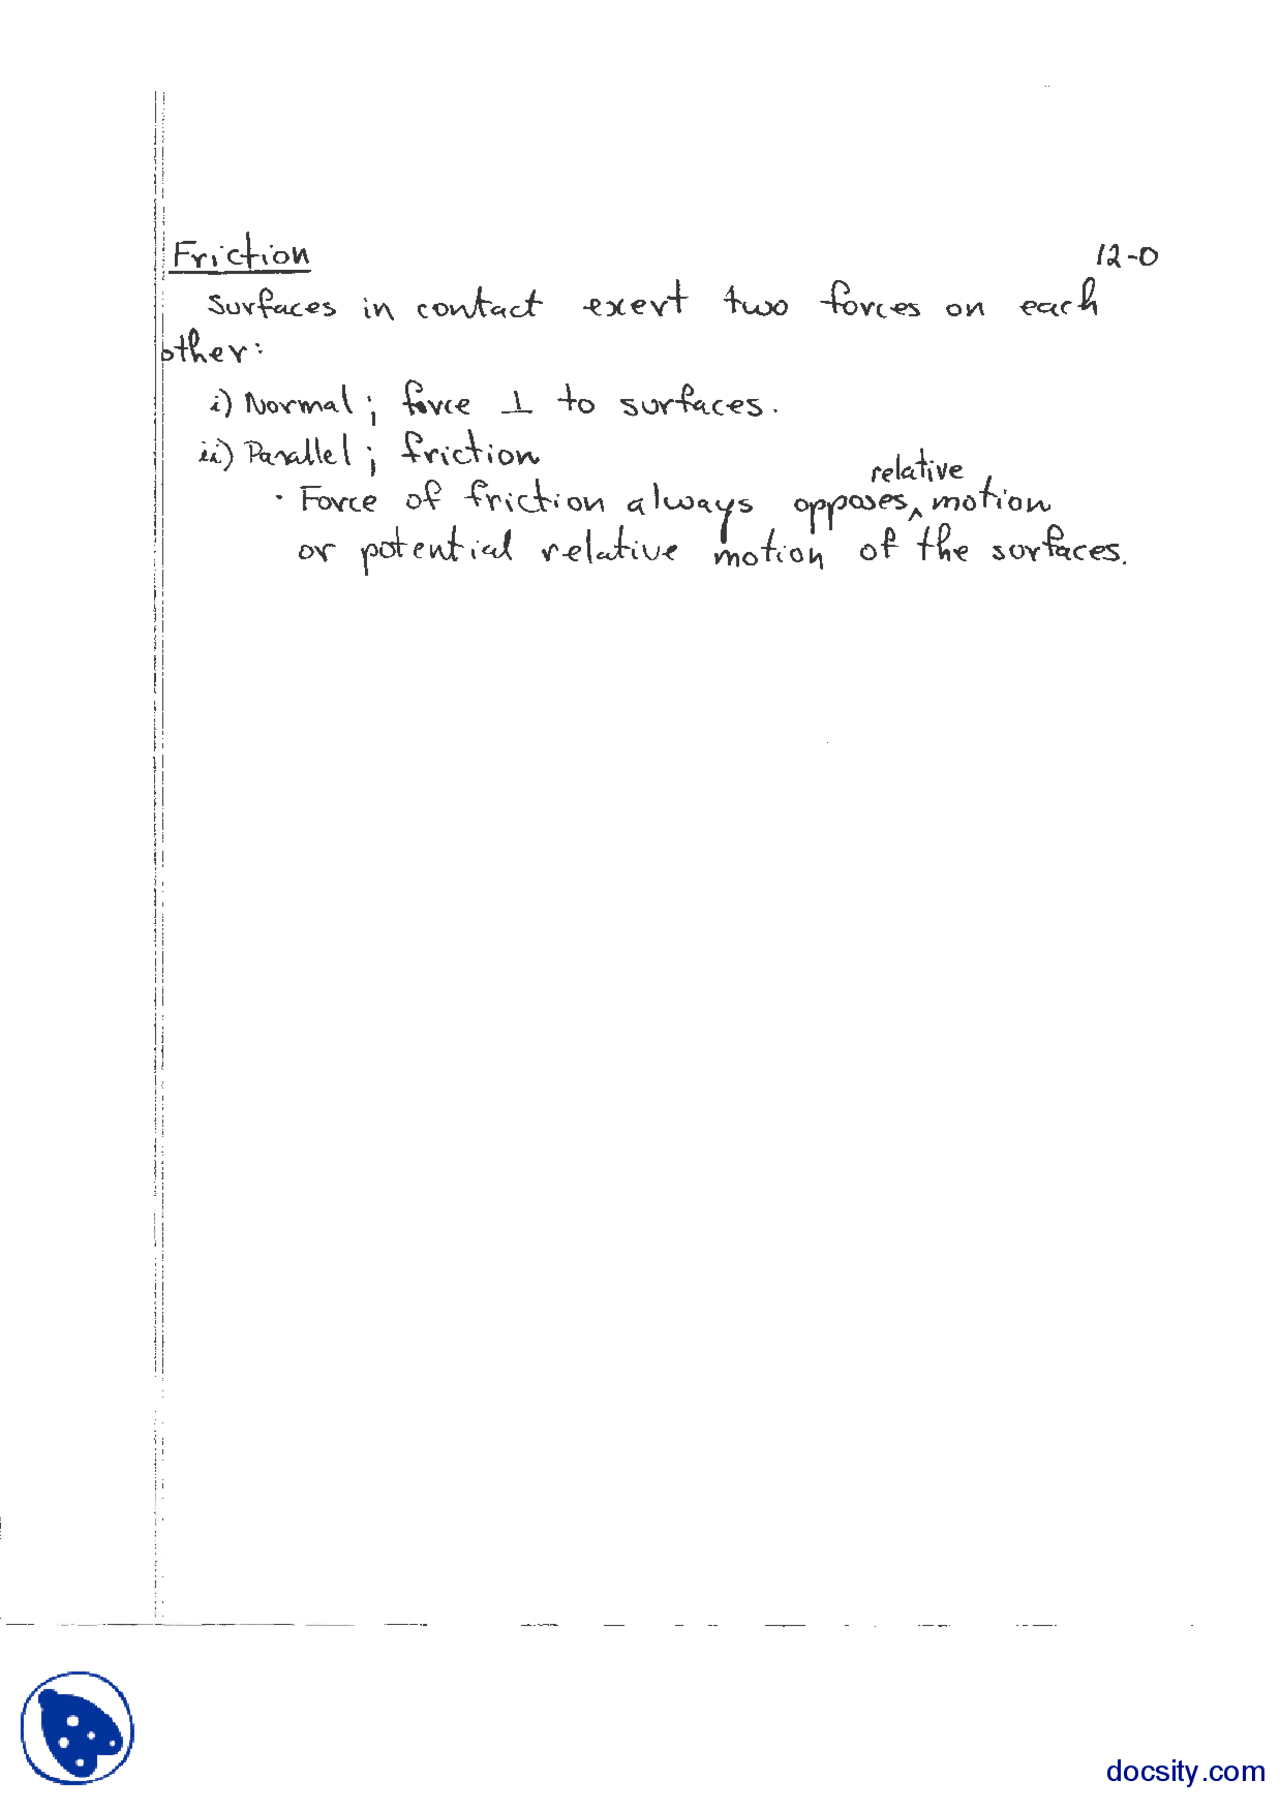 Friction 12-0
Surfaces in contact exert two forces on each
other:
i) Normal; force ⊥ to surfaces.
ii) Parallel; friction
relative
· Force of friction always opposes ^ motion
or potential relative motion of the surfaces.
docsity.com